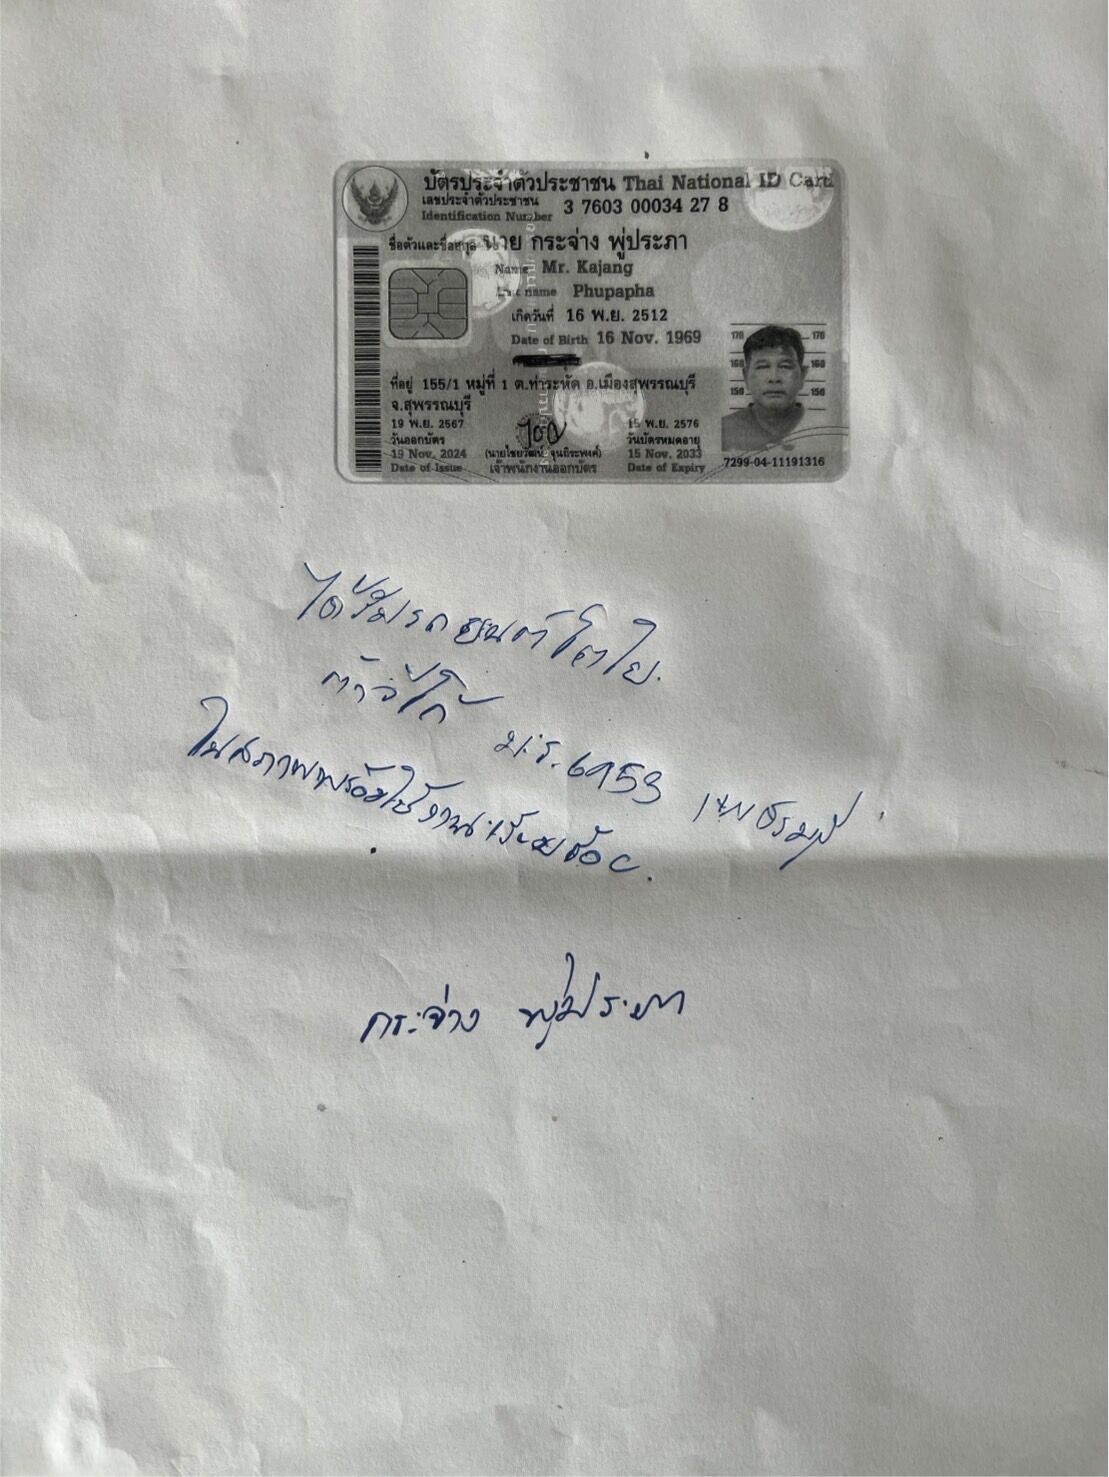 บัตรประจำตัวประชาชน Thai National ID Card
เลขประจำตัวประชาชน
Identification Number 3 7603 00034 27 8
ชื่อตัวและชื่อสกุล นาย กระจ่าง พู่ประภา
Name Mr. Kajang
Last name Phupapha
เกิดวันที่ 16 พ.ย. 2512
Date of Birth 16 Nov. 1969
ที่อยู่ 155/1 หมู่ที่ 1 ต.ท่าระหัด อ.เมืองสุพรรณบุรี
จ.สุพรรณบุรี
19 พ.ย. 2567
วันออกบัตร
19 Nov. 2024
Date of Issue
(นายไชยวัฒน์ จุนถิระพงศ์)
เจ้าพนักงานออกบัตร
15 พ.ย. 2576
วันบัตรหมดอายุ
15 Nov. 2033
Date of Expiry
176 176
166 166
156 156
7299-04-11191316
ได้รับรถยนต์โตโย
ต้าวีโก้ 6953 เพชรบุรี
ในสภาพพร้อมใช้งานเรียบร้อย.
กระจ่าง พู่ประภา